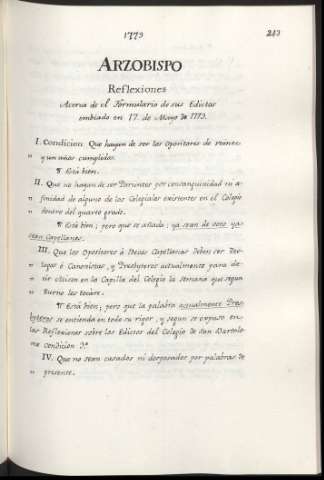 1773
213
ARZOBISPO
Reflexiones
Acerca de el Formulario de sus Edictos
embiado en 17 de Mayo de 1773.
I. Condicion Que hayan de ser los Opositores de veinte
" y un años cumplidos.
¶ Está bien.
II. Que no hayan de ser Parientes por consanguinidad ni a-
" finidad de alguno de los Colegiales existentes en el Colegio
" dentro del quarto grado.
¶ Está bien; pero que se añada: ya sean de voto, ya
sean Capellanes.
III. Que los Opositores à Becas Capellanas deben ser Teo-
" logos ò Canonistas, y Presbyteros actualmente para de-
" cir Missa en la Capilla del Colegio la semana que segun
" turno les tocare.
¶ Está bien; pero que la palabra actualmente Pres-
byteros se entienda en todo su rigor, y segun se expuso en
las Reflexiones sobre los Edictos del Colegio de San Bartolo-
me condicion 3ª.
IV. Que no sean casados ni desposados por palabras de
" presente.